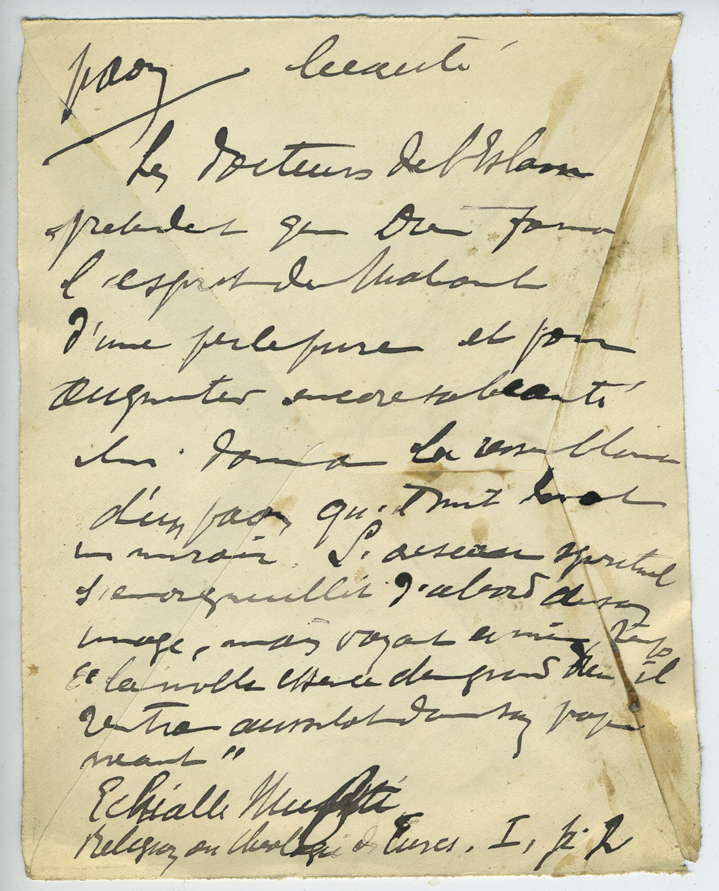 paon beauté
Les docteurs de l'Islam
prétendent que Dieu forma
l'esprit de Mahomet
d'une perle pure et pour
augmenter encore sa beauté
lui donna la ressemblance
d'un paon qu'il mit devant
un miroir. L'oiseau spirituel
s'enorgueillit d'abord de son
image, mais voyant en même temps
la noble essence du grand Dieu il
rentra aussitôt dans son propre
néant"
Echialle Mufti
Religion ou théologie des Turcs. I, p. 2